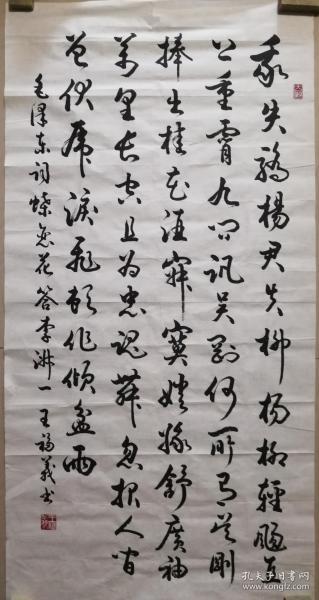 我失骄杨君失柳杨柳轻飏直
上重霄九问讯吴刚何所有吴刚
捧出桂花酒寂寞嫦娥舒廣袖
萬里长空且为忠魂舞忽报人间
曾伏虎淚飛顿作倾盆雨
毛泽东词蝶恋花答李淑一 王福義书
孔夫子旧书网